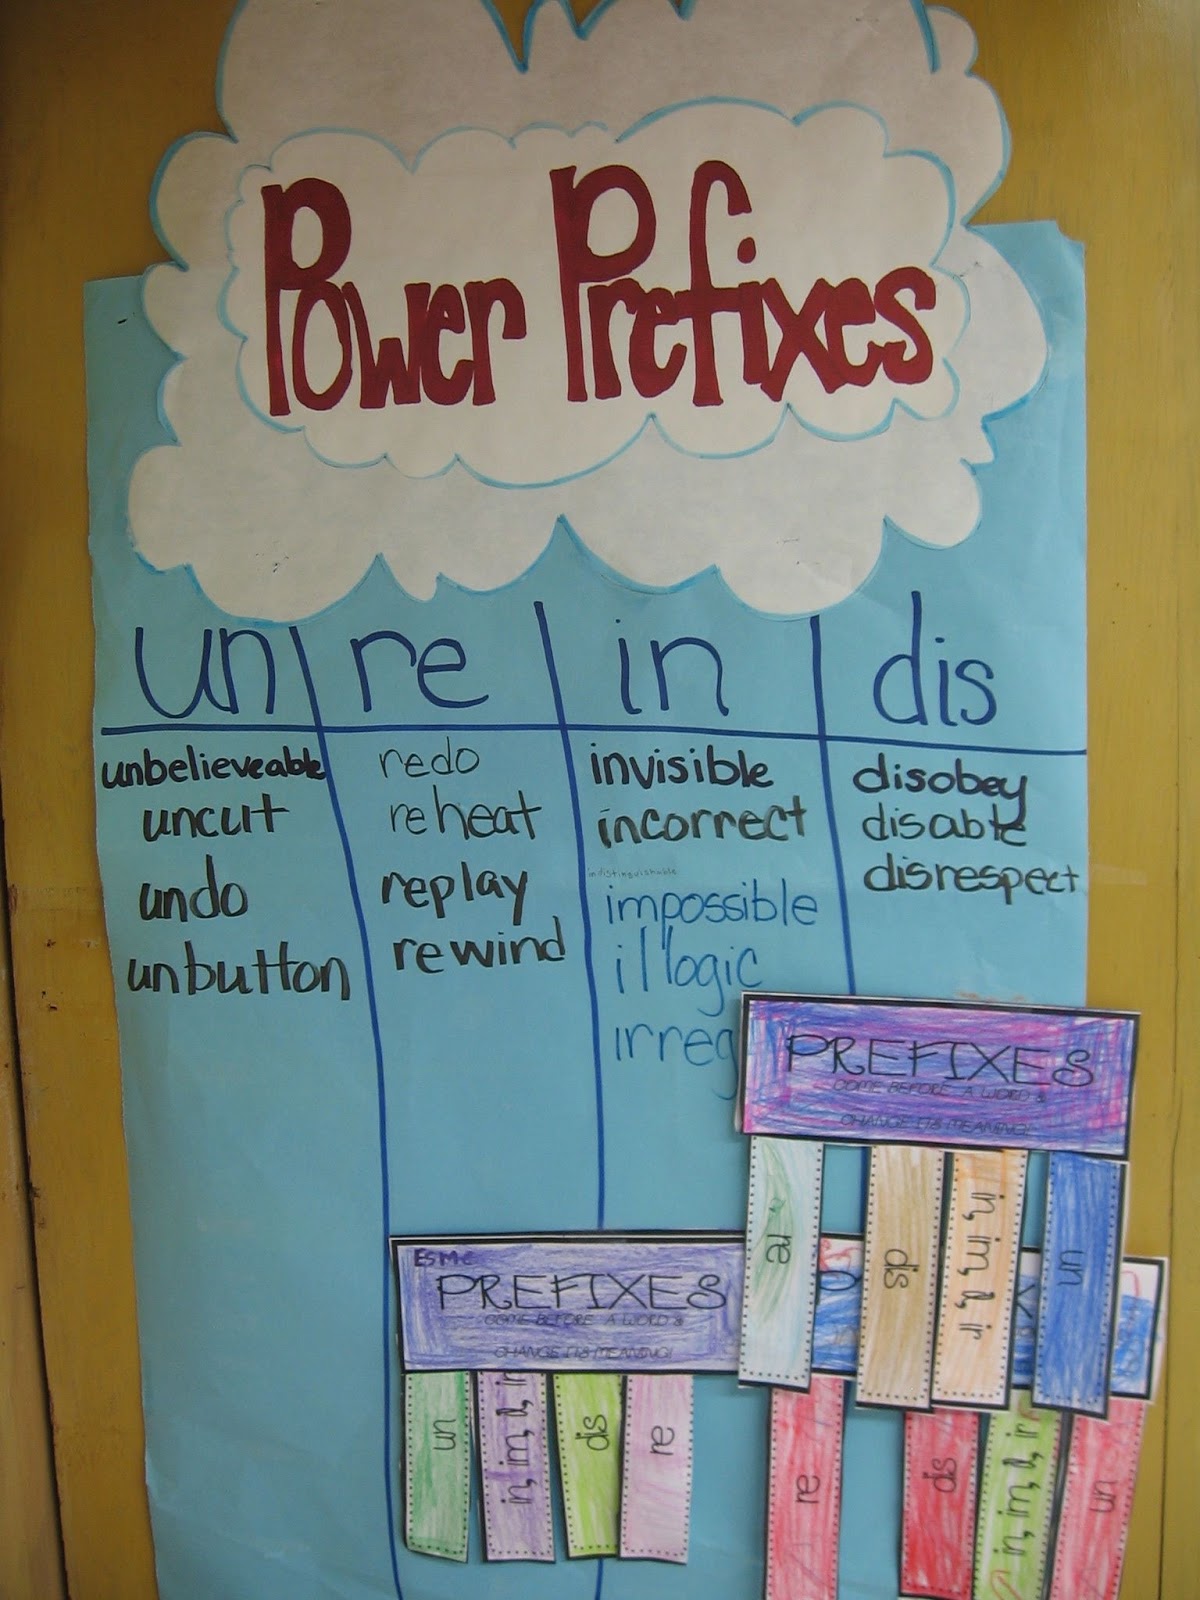 Power Prefixes
un re in dis
unbelieveable
uncut
undo
unbutton
redo
reheat
replay
rewind
invisible
incorrect
indistinguishable
impossible
illogic
irreg
disobey
disable
disrespect
PREFIXES
COME BEFORE A WORD &
CHANGE ITS MEANING!
re
dis
in, im, il, ir
un
Esme
PREFIXES
COME BEFORE A WORD &
CHANGE ITS MEANING!
un
in, im, il, ir
dis
re
re
dis
in, im, il, ir
un